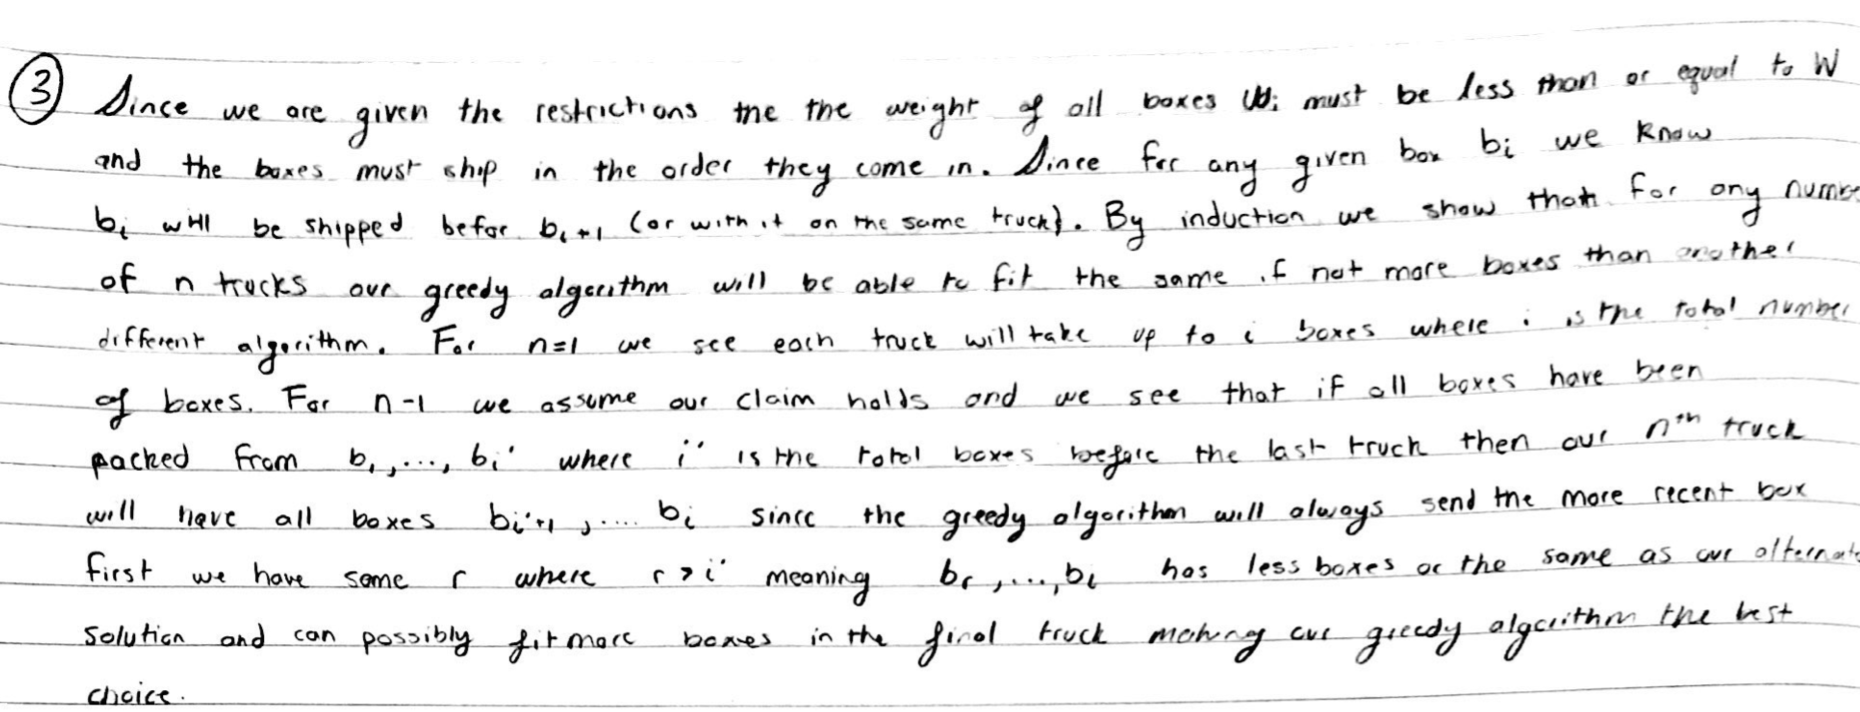 ③ Since we are given the restrictions the the weight of all boxes Wi must be less than or equal to W
and the boxes must ship in the order they come in. Since for any given box bi we know
bi will be shipped befor bi+1 (or with it on the same truck). By induction we show that for any numbe
of n trucks our greedy algorithm will be able to fit the same if not more boxes than another
different algorithm. For n=1 we see each truck will take up to i boxes where i is the total number
of boxes. For n-1 we assume our claim holds and we see that if all boxes have been
packed from b1,..., bi' where i' is the total boxes before the last truck then our nth truck
will have all boxes bi'+1,.... bi since the greedy algorithm will always send the more recent box
first we have some r where r>i' meaning br,..., bi has less boxes or the same as our alternate
solution and can possibly fit more boxes in the final truck making our greedy algorithm the best
choice.